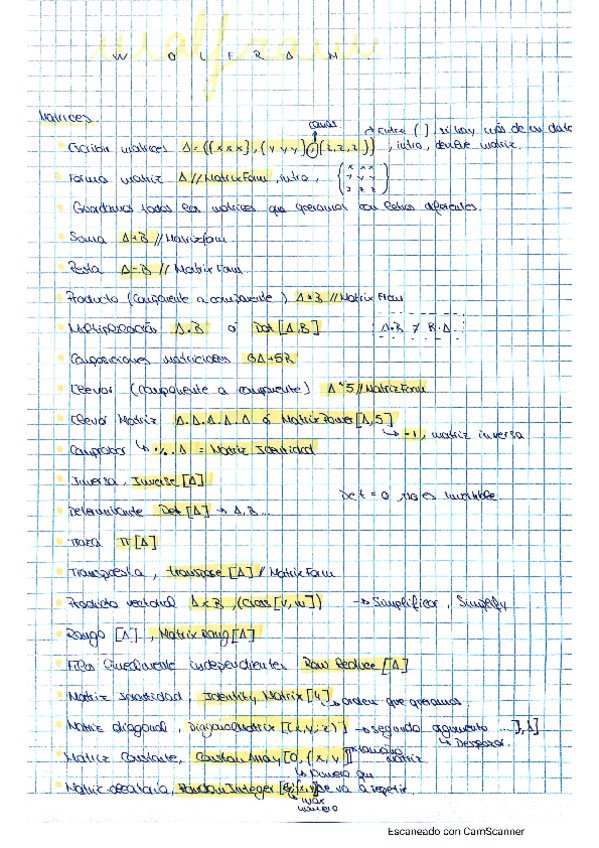 wolfram
W O L F R A M
Matrices
comas
→ Entre { }, si hay más de un dato
Escribir matrices A={{x x x},{y y y},{z,z,z}}, intro, devuelve matriz.
Forma matriz A//MatrixForm, intro, (x x x y y y z z z)
Guardamos todas las matrices que queramos con letras diferentes.
Suma A+B //MatrixForm
Resta A-B // MatrixForm
Producto (componente a componente) A*B //MatrixForm
Multiplicación A.B ó Dot[A,B] A.B ≠ B.A
Composiciones matriciales 6A+5B
Elevar (componente a componente) A^5//MatrixForm
Elevar Matriz A.A.A.A.A ó MatrixPower[A,5]
↳ -1, matriz inversa
Comprobar ↳ %.A = Matriz Identidad
Inversa, Inverse[A]
Det = 0, no es invertible
Determinante Det[A] → A,B...
Traza Tr[A]
Transpuesta, transpose[A]//MatrixForm
Producto vectorial AxB, (Cross[v,w]) → Simplificar, Simplify
Rango [A], MatrixRang[A]
Filas linealmente independientes Row Reduce [A]
Matriz Identidad, Identity Matrix[4] → orden que queramos
Matriz diagonal, DiagonalMatrix[{x,y,z}] → segundo argumento ],1]
↳ Desplazar.
Matriz Constante, ConstantArray[0,{x,y}] tamaño matriz
↳ Número que se va a repetir
Matriz aleatoria, RandomInteger
max número
Escaneado con CamScanner